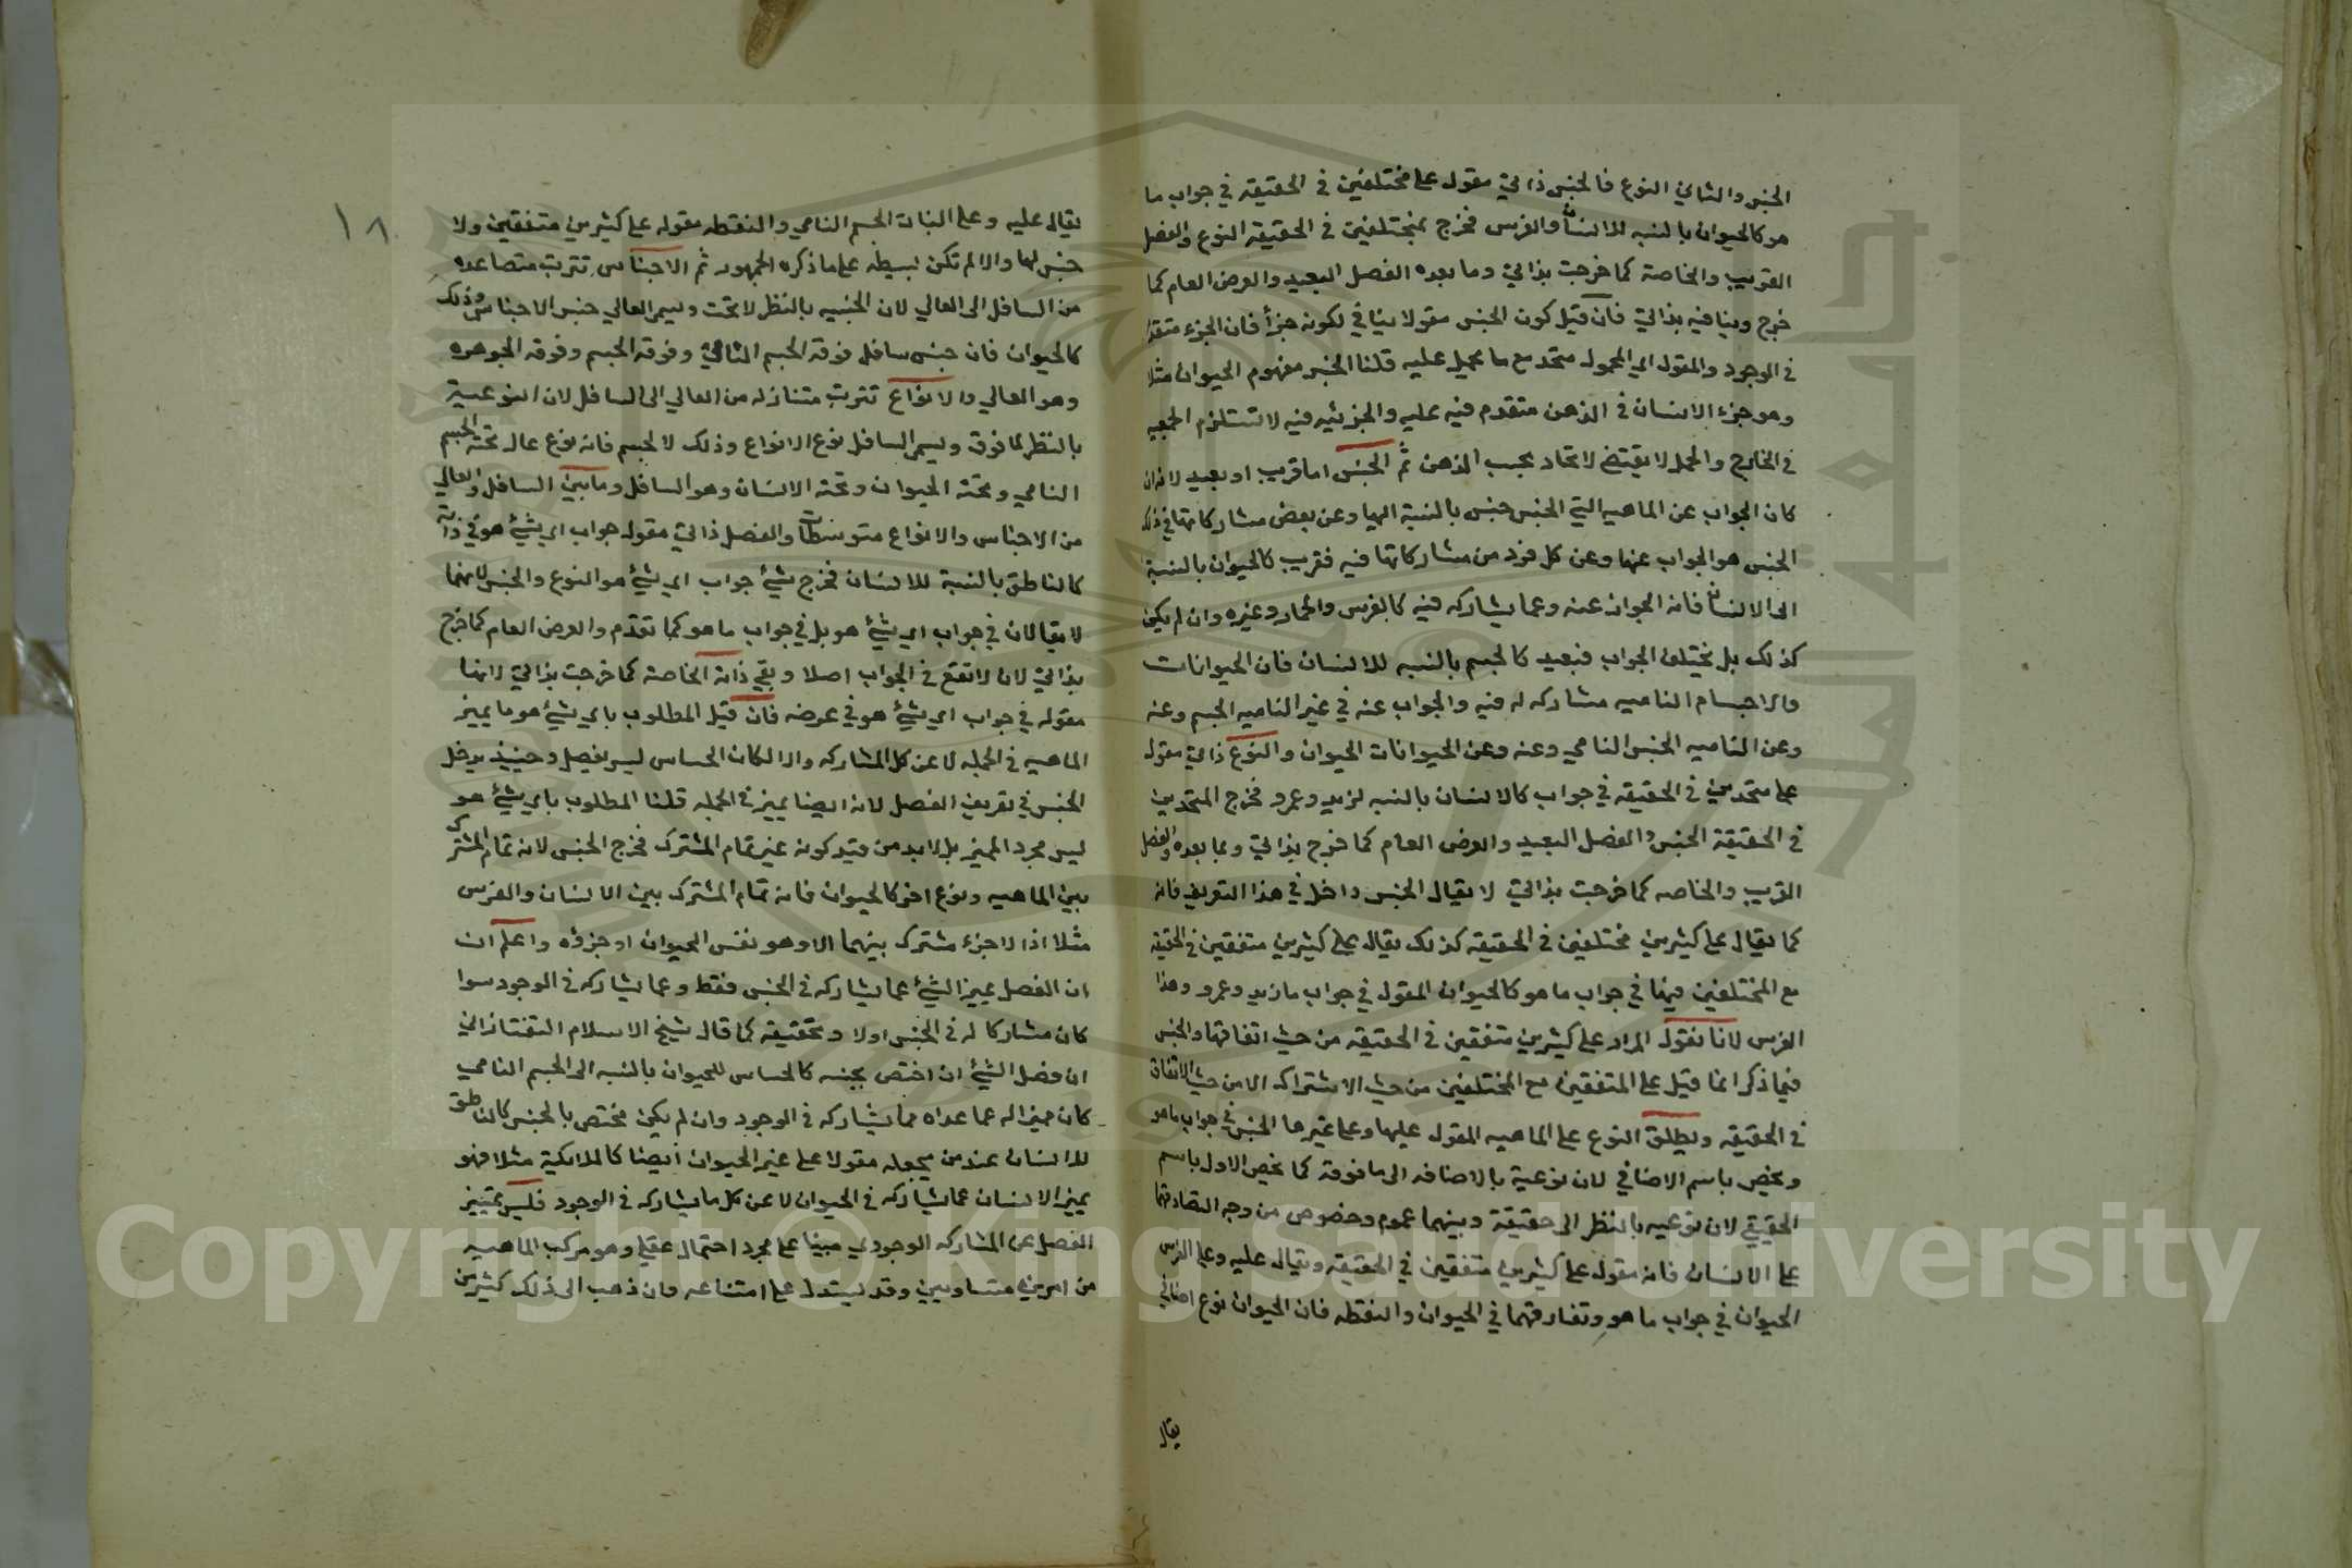 الجنس والثاني النوع فالجنس ذاتي مقول على مختلفين في الحقيقة في جواب ما
هو كالحيوان بالنسبه للانسان والفرس فخرج بمختلفين في الحقيقة النوع والفصل
القريب والخاصة كما خرجت بذاتي وما بعده الفصل البعيد والعرض العام كما
خرج وينافيه بذاتي فان قيل كون الجنس مقولا ينافي لكونه جزأ فان الجزء متقدم
في الوجود والمقول اي المحمول متحد مع ما يحمل عليه قلنا الجنس مفهوم الحيوان مثلا
وهو جزء الانسان في الذهن متقدم فيه عليه والجزئيه فيه لا تستلزم
في الخارج والحمل لا يقتضي لاتحاد بحسب الذهن ثم الجنس اما قريب او بعيد لانه ان
كان الجواب عن الماهيه التي الجنس جنس بالنسبة اليها وعن بعض مشاركاتها في ذلك
الجنس هو الجواب عنها وعن كل فرد من مشاركاتها فيه فقريب كالحيوان بالنسبة
الى الانسان فانه الجواب عنه وعما يشاركه فيه كالفرس والحمار وغيره وان لم يكن
كذلك بل يختلف الجواب فبعيد كالجسم بالنسبه للانسان فان الحيوانات
والاجسام الناميه مشاركه له فيه والجواب عنه في غير الناميه الجسم وعنه
وعن الناميه الجنس النامي وعنه وعن الحيوانات الحيوان والنوع ذاتي مقول
على متحدين في الحقيقه في جواب كالانسان بالنسبه لزيد وعمرو فخرج المتحدين
في الحقيقة الجنس والفصل البعيد والعرض العام كما خرج بذاتي وبما بعده والفصل
القريب والخاصه كما خرجت بذاتي لا يقال الجنس داخل في هذا التعريف فانه
كما يقال على كثيرين مختلفين في الحقيقه كذلك يقال على كثيرين متفقين في الحقيقه
مع المختلفين فيها في جواب ما هو كالحيوان المقول في جواب ما زيد وعمرو وهذا
الفرس لانا نقول المراد على كثيرين متفقين في الحقيقه من حيث اتفاقها والجنس
فيما ذكر انما قيل على المتفقين مع المختلفين من حيث الاشتراك لا من حيث الاتفاق
في الحقيقه ويطلق النوع على الماهيه المقول عليها وعلى غيرها الجنس في جواب ما هو
ويخص باسم الاضافي لان نوعية بالاضافه الى ما فوقه كما يخص الاول باسم
الحقيقي لان نوعيه بالنظر الى حقيقة وبينهما عموم وخصوص من وجه لتصادقهما
على الانسان فانه مقول على كثيرين متفقين في الحقيقه ويقال عليه وعلى الفرس
الحيوان في جواب ما هو وتفارقهما في الحيوان والنقطه فان الحيوان نوع اضافي
يقال
١٨
يقال عليه وعلى النبات الجسم النامي والنقطه مقوله على كثيرين متفقين ولا
جنس لها والا لم تكن بسيطه على ما ذكره الجمهور ثم الاجناس تترتب متصاعده
من السافل الى العالي لان الجنسيه بالنظر لا تحت ويسمى العالي جنس الاجناس وذلك
كالحيوان فانه جنس سافل فوقه الجسم النامي وفوقه الجسم وفوقه الجوهره
وهو العالي والانواع تترتب متنازله من العالي الى السافل لان النوعية
بالنظر لما فوق ويسمى السافل نوع الانواع وذلك لا لجسم فانه نوع عال تحته الجسم
النامي وتحته الحيوان وتحته الانسان وهو السافل وما بين السافل والعالي
من الاجناس والانواع متوسطات والفصل ذاتي مقول جواب اي شيئ هو في ذاته
كالناطق بالنسبة للانسان فخرج بشيئ جواب اي شيئ هو النوع والجنس لانهما
لا يقالان في جواب اي شيئ هو بل في جواب ما هو كما تقدم والعرض العام كما خرج
بذاتي لان لا تقع في الجواب اصلا وبقي ذاته الخاصه كما خرجت بذاتي لانها
مقوله في جواب اي شيئ هو في عرضه فان قيل المطلوب باي شيئ هو ما يميز
الماهيه في الجمله لا عن كل المشاركه والا لكان الحساس ليس بفصل وحينئذ يدخل
الجنس في تعريف الفصل لانه ايضا يميز في الجمله قلنا المطلوب باي شيئ هو
ليس مجرد المميز بل لا بد من قيد كونه غير تمام المشترك فخرج الجنس لانه تمام المشترك
بين الماهيه ونوع اخر كالحيوان فانه تمام المشترك بين الانسان والفرس
مثلا اذ لا جزء مشترك بينهما الا وهو نفس الحيوان او جزؤه واعلم ان
ان الفصل يميز الشيئ عما يشاركه في الجنس فقط وعما يشاركه في الوجود سوا
كان مشاركا له في الجنس اولا وتحقيقه كما قال شيخ الاسلام التفتازاني
ان فصل الشيئ ان اختص بجنسه كالحساس للحيوان بالنسبه الى الجسم النامي
كان مميزا له عما عداه مما يشاركه في الوجود وان لم يكن مختص بالجنس كالناطق
للانسان عند من يجعله مقولا على غير الحيوان ايضا كالملائكية مثلا فهو
يميز الانسان عما يشاركه في الحيوان لا عن كل ما يشاركه في الوجود فليس تمييز
الفصل عن المشاركه الوجودي مبنيا على مجرد احتمال عقلي وهو مركب الماهيه
من امرين متساويين وقد يستدل على امتناعه وان ذهب الى ذلك كثيرين
Copyright © King Saud University